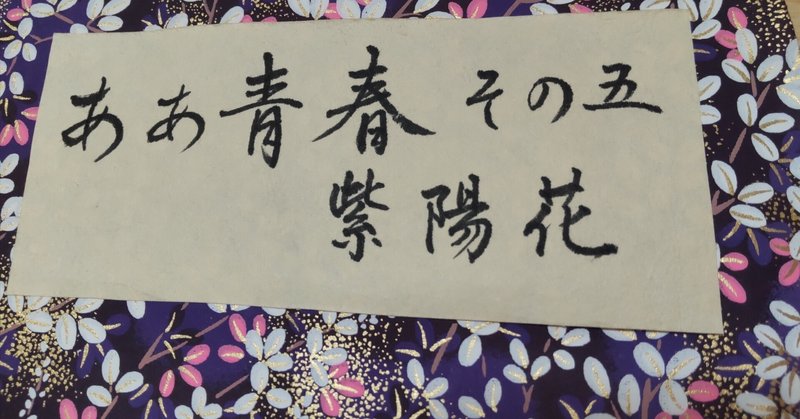 ああ青春 その五
紫陽花